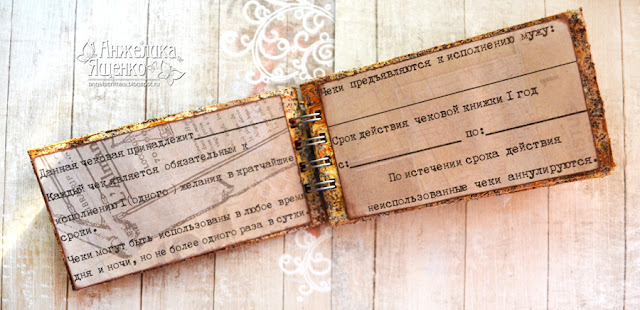 Анжелика
Ященко
Данная чековая принадлежит
Каждый чек является обязательным к
исполнению 1(одного) желания в кратчайшие
сроки.
Чеки могут быть использованы в любое время
дня и ночи, но не более одного раза в сутки.
Чеки предъявляются к исполнению мужу:
Срок действия чековой книжки 1 год
с: по:
По истечении срока действия
неиспользованные чеки аннулируются.